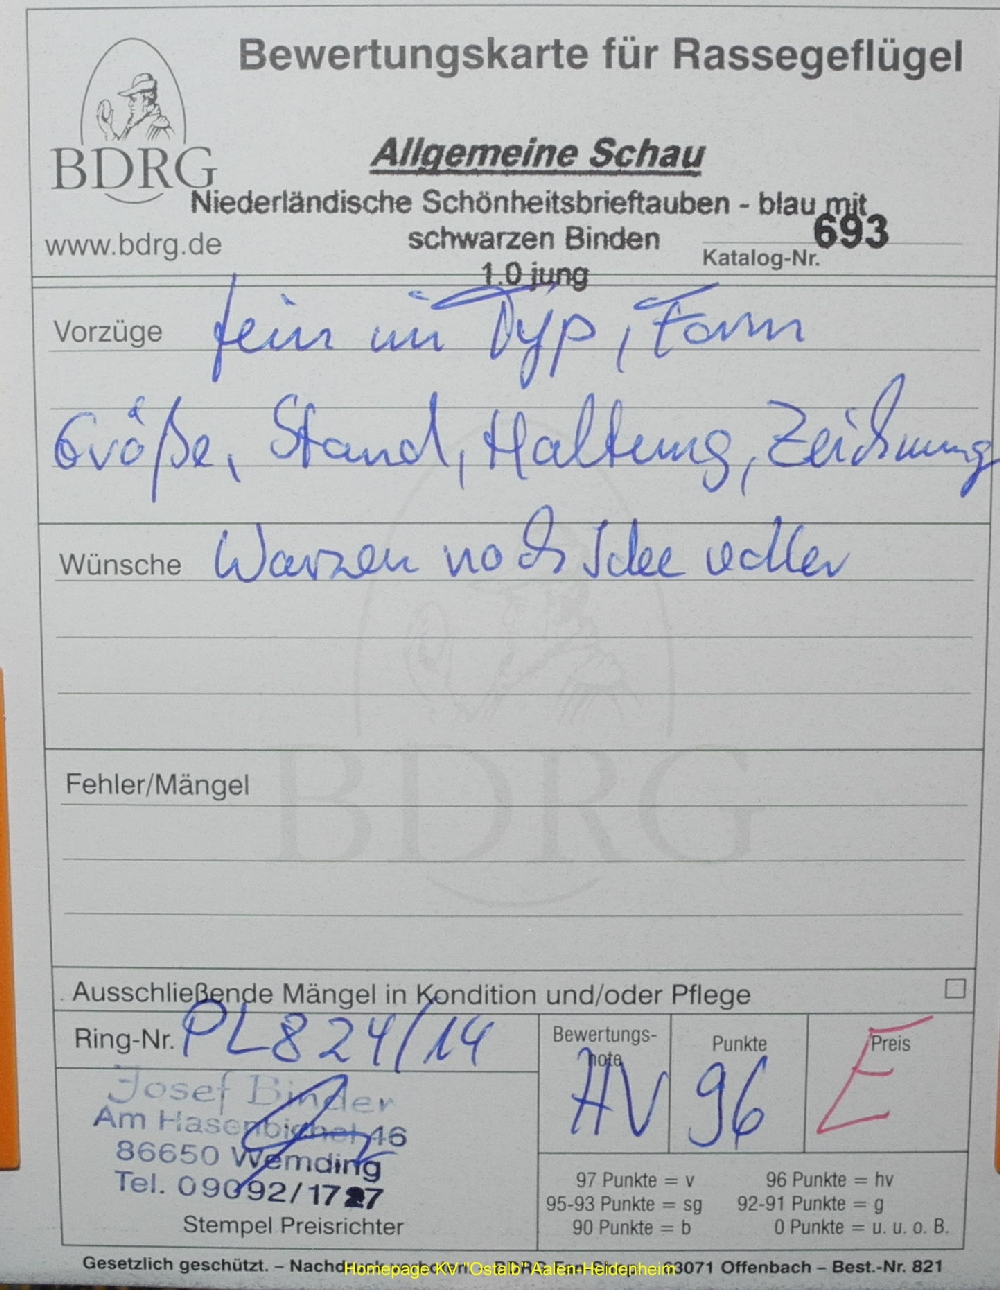 Bewertungskarte für Rassegeflügel
BDRG
www.bdrg.de
Allgemeine Schau
Niederländische Schönheitsbrieftauben - blau mit
schwarzen Binden
1.0 jung
693
Katalog-Nr.
Vorzüge fein im Typ, Form
Größe, Stand, Haltung, Zeichnung
Wünsche Warzen noch Idee edler
BDRG
Fehler/Mängel
Ausschließende Mängel in Kondition und/oder Pflege
Ring-Nr. PL824/14
Bewertungs-
note
HV
Punkte
96
Preis
E
Josef Binder
Am Hasenbichel 46
86650 Wemding
Tel. 09092/1727
Stempel Preisrichter
97 Punkte = v 96 Punkte = hv
95-93 Punkte = sg 92-91 Punkte = g
90 Punkte = b 0 Punkte = u. u. o. B.
Gesetzlich geschützt. – 63071 Offenbach – Best.-Nr. 821
Homepage KV "Ostalb" Aalen-Heidenheim